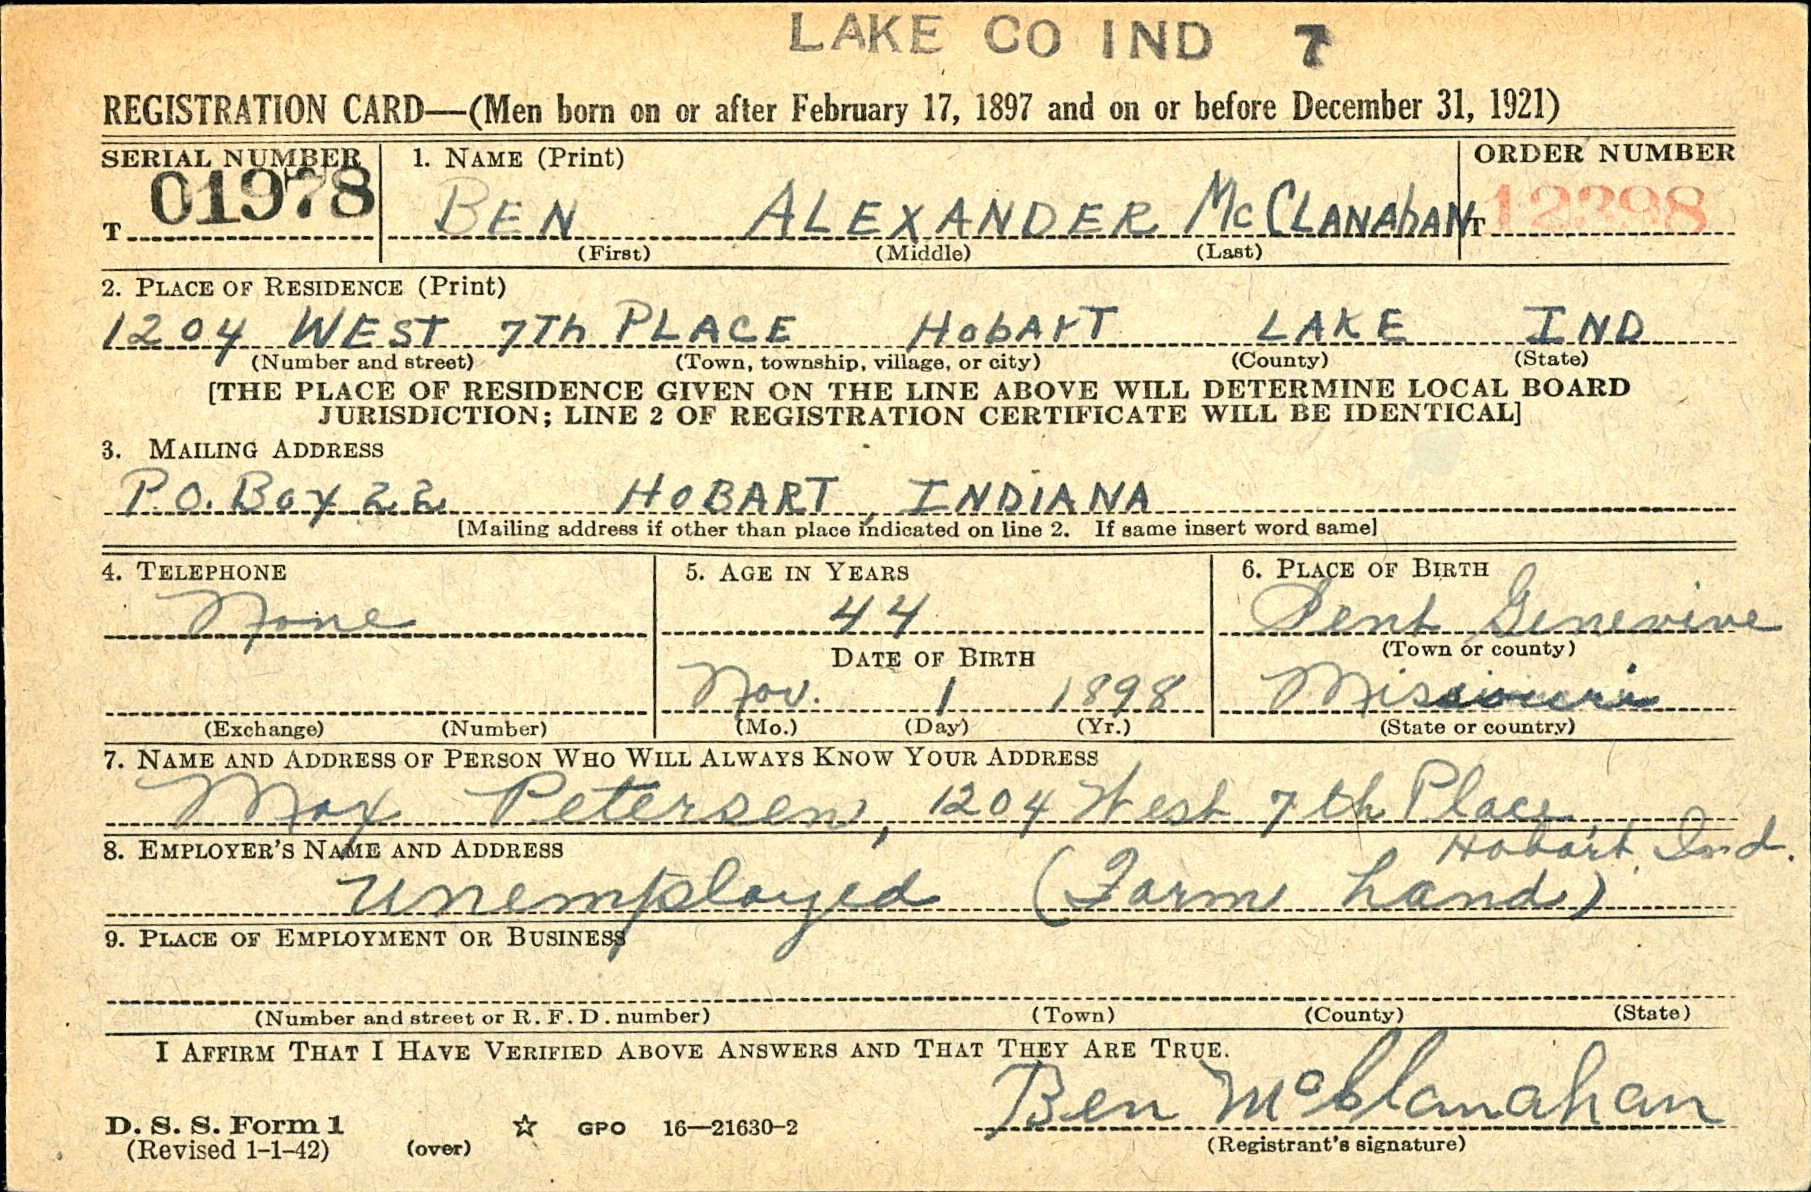 LAKE CO IND 7
REGISTRATION CARD—(Men born on or after February 17, 1897 and on or before December 31, 1921)
SERIAL NUMBER 1. NAME (Print) ORDER NUMBER
T 01978 BEN ALEXANDER McCLANAhAN T 12398
(First) (Middle) (Last)
2. PLACE OF RESIDENCE (Print)
1204 WEST 7Th PLACE HobArT LAKE IND
(Number and street) (Town, township, village, or city) (County) (State)
[THE PLACE OF RESIDENCE GIVEN ON THE LINE ABOVE WILL DETERMINE LOCAL BOARD
JURISDICTION; LINE 2 OF REGISTRATION CERTIFICATE WILL BE IDENTICAL]
3. MAILING ADDRESS
P.O. Box 22 HOBART, INDIANA
[Mailing address if other than place indicated on line 2. If same insert word same]
4. TELEPHONE 5. AGE IN YEARS 6. PLACE OF BIRTH
None 44 Sent Genevive
DATE OF BIRTH (Town or county)
Nov. 1 1898 Missouri
(Exchange) (Number) (Mo.) (Day) (Yr.) (State or country)
7. NAME AND ADDRESS OF PERSON WHO WILL ALWAYS KNOW YOUR ADDRESS
Max Petersen, 1204 West 7th Place,
Hobart Ind.
8. EMPLOYER'S NAME AND ADDRESS
Unemployed (Farm hand)
9. PLACE OF EMPLOYMENT OR BUSINESS
(Number and street or R. F. D. number) (Town) (County) (State)
I AFFIRM THAT I HAVE VERIFIED ABOVE ANSWERS AND THAT THEY ARE TRUE.
Ben McClanahan
D. S. S. Form 1 ☆ GPO 16—21630-2
(Revised 1-1-42) (over) (Registrant's signature)